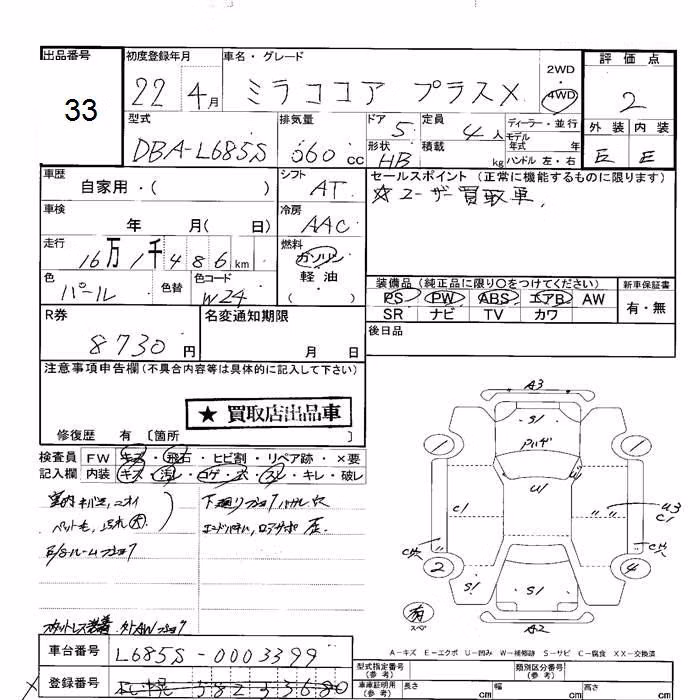 出品番号 初度登録年月 車名・グレード 2WD・4WD 評価点
33 22年4月 ミラココア プラスX 2
型式 排気量 ドア 定員 ディーラー・並行 外装 内装
DBA-L685S 660cc 5 4人 モデル年式 年式 E E
形状 HB 積載 kg ハンドル 左・右
車歴 シフト セールスポイント (正常に機能するものに限ります)
自家用・( ) AT ☆ユーザー買取車.
車検 冷房
年 月( 日) AAC
走行 燃料
16万1千486km ガソリン
色 色替 色コード 軽油 装備品 (純正品に限り○をつけてください) 新車保証書
パール W24 ( ) PS PW ABS エアB AW 有・無
SR ナビ TV カワ
R券 名変通知期限 後日品
8730円 月 日
注意事項申告欄(不具合内容等は具体的に記入して下さい)
★ 買取店出品車
修復歴 有 〔箇所 〕
検査員 FW キズ・飛石・ヒビ割・リペア跡・×要
記入欄 内装 キズ・汚レ・コゲ・穴・スレ・キレ・破レ
室内キバミ,ニオイ 下廻り
ペット毛,
A3
S1
U1
C1
U3
C1
2 4
S1 S1
A2
有
スペ
A-キズ E-エクボ U-凹み W-補修跡 S-サビ C-腐食 XX-交換済
車台番号 L685S-0003399 型式指定番号(参考) 類別区分番号(参考)
登録番号 車庫証明用(参考) 長さ cm 幅 cm 高さ cm